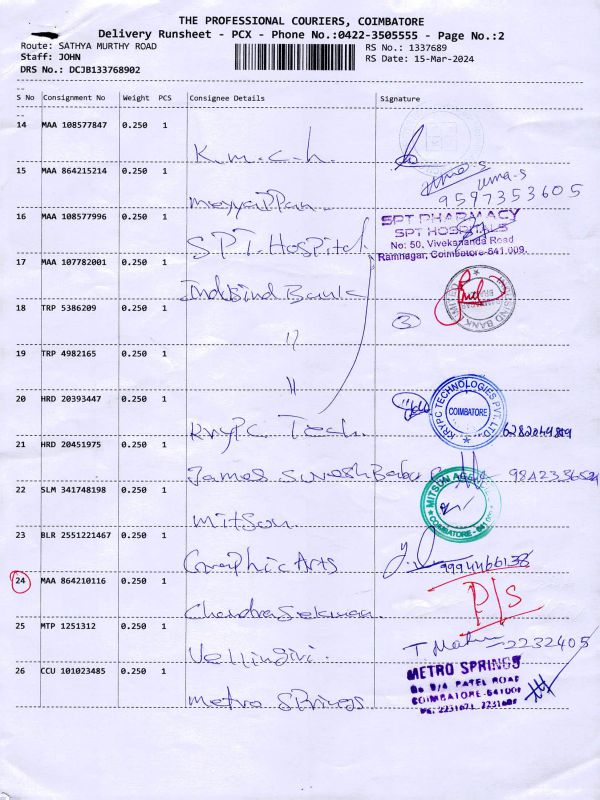 THE PROFESSIONAL COURIERS, COIMBATORE
Delivery Runsheet - PCX - Phone No.:0422-3505555 - Page No.:2
Route: SATHYA MURTHY ROAD RS No.: 1337689
Staff: JOHN RS Date: 15-Mar-2024
DRS No.: DCJB133768902
S No Consignment No Weight PCS Consignee Details Signature
14 MAA 108577847 0.250 1
K.m.c.h.
15 MAA 864215214 0.250 1
uma-s
uma-s
9597353605
meyyappan
16 MAA 108577996 0.250 1
SPT PHARMACY
SPT HOSPITALS
No: 50, Vivekananda Road
Ramnagar, Coimbatore-641 009.
S.P.T. Hospital
17 MAA 107782001 0.250 1
IndusInd Bank
18 TRP 5386209 0.250 1
3
"
19 TRP 4982165 0.250 1
"
20 HRD 20393447 0.250 1
KRYPC TECHNOLOGIES PVT. LTD.
COIMBATORE
Krypc Tech.
21 HRD 20451975 0.250 1
James Suresh Babu
22 SLM 341748198 0.250 1
COIMBATORE
mitson
23 BLR 2551221467 0.250 1
Graphic Arts
9994466138
24 MAA 864210116 0.250 1
P/S
Chandrasekaran
25 MTP 1251312 0.250 1
2232405
Vellingiri.
26 CCU 101023485 0.250 1
METRO SPRINGS
PATEL ROAD
COIMBATORE-641009
metro springs